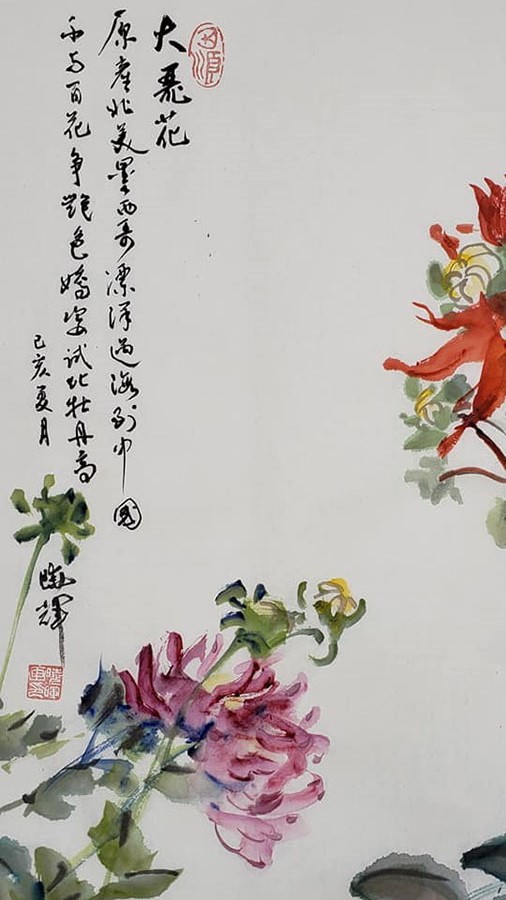 大丽花
原产北美墨西哥漂洋过海到中国
百花争艳色娇姿试比牡丹高
己亥夏月